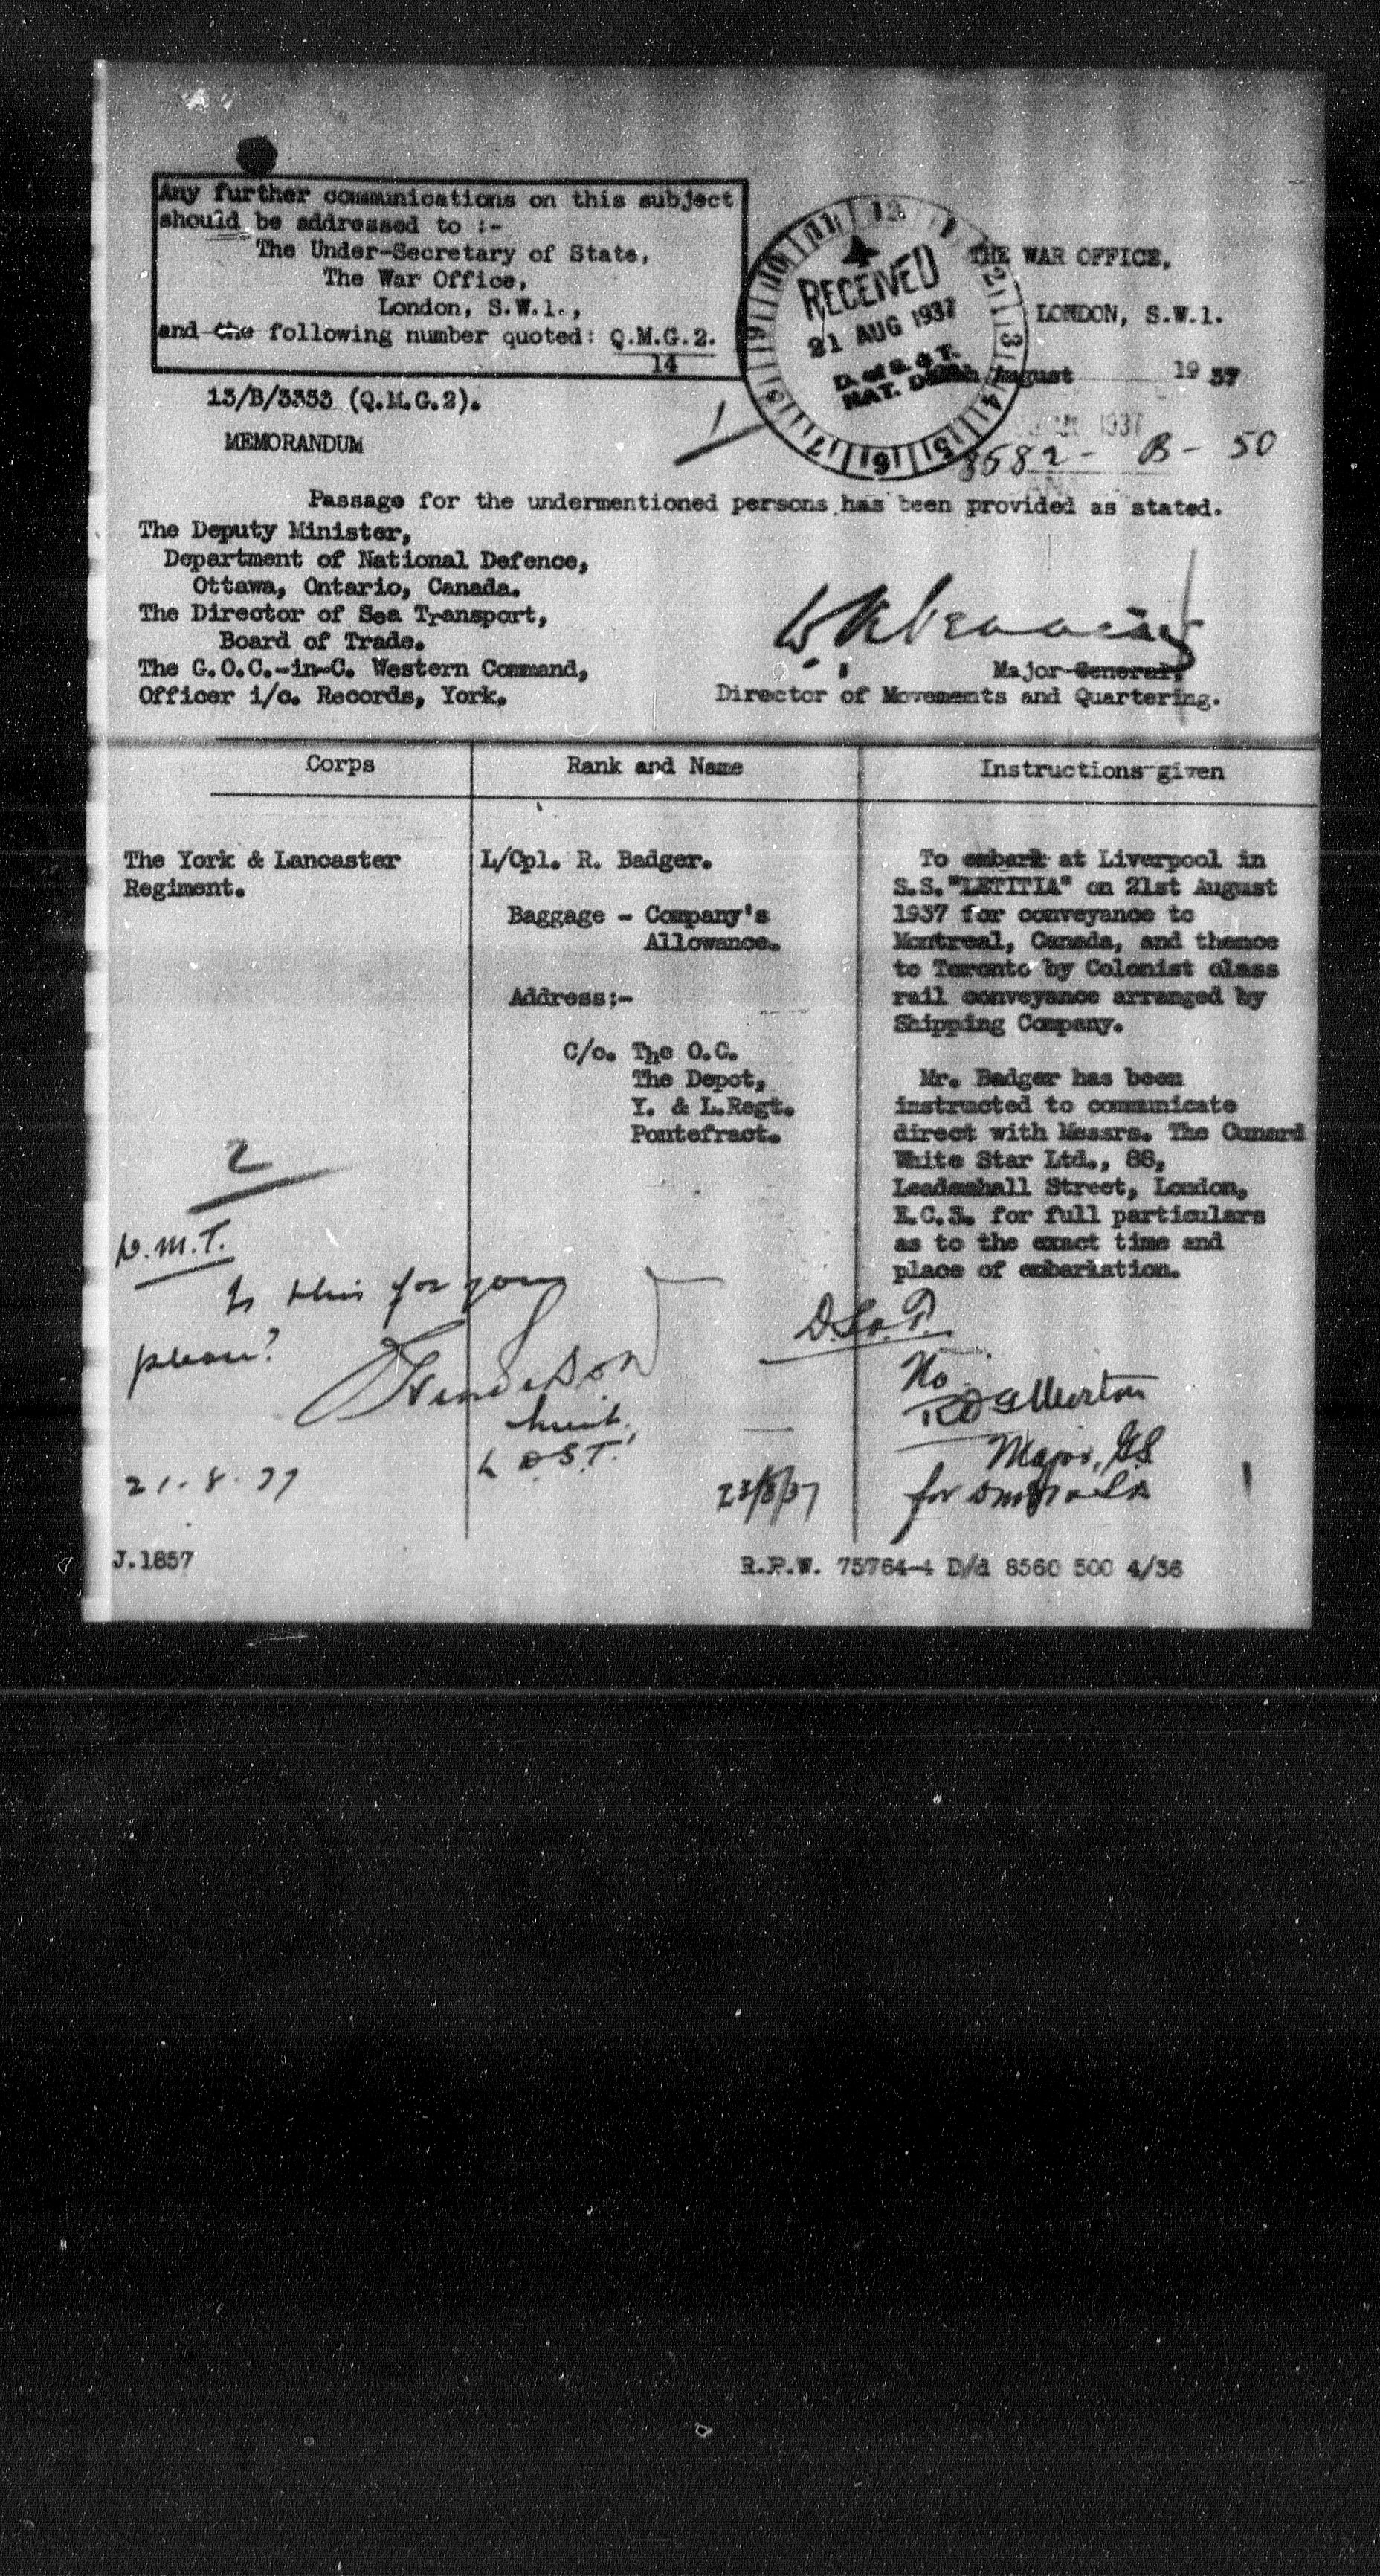 Any further communications on this subject
should be addressed to :-
The Under-Secretary of State,
The War Office,
London, S.W.1.,
and the following number quoted: Q.M.G.2.
14
RECEIVED
21 AUG 1937
D. of S. & T.
NAT. DEF.
THE WAR OFFICE,
LONDON, S.W.1.
August 1937
13/B/3353 (Q.M.G.2).
1
8582 - B - 50
MEMORANDUM
Passage for the undermentioned persons has been provided as stated.
The Deputy Minister,
Department of National Defence,
Ottawa, Ontario, Canada.
The Director of Sea Transport,
Board of Trade.
The G.O.C.-in-C. Western Command,
Officer i/c. Records, York.
Major-General,
Director of Movements and Quartering.
Corps
Rank and Name
Instructions given
The York & Lancaster
Regiment.
L/Cpl. R. Badger.
Baggage - Company's
Allowance.
Address:-
C/o. The O.C.
The Depot,
Y. & L.Regt.
Pontefract.
To embark at Liverpool in
S.S."LETITIA" on 21st August
1937 for conveyance to
Montreal, Canada, and thence
to Toronto by Colonist class
rail conveyance arranged by
Shipping Company.
Mr. Badger has been
instructed to communicate
direct with Messrs. The Cunard
White Star Ltd., 88,
Leadenhall Street, London,
E.C.3. for full particulars
as to the exact time and
place of embarkation.
2
D.M.T.
Is this for you
please?
Henderson
Lieut.
D.S.T.
21.8.37
D.S. & T.
No
Major, G.S.
for
23/8/37
J.1857
R.P.W. 75764-4 D/d 8560 500 4/36